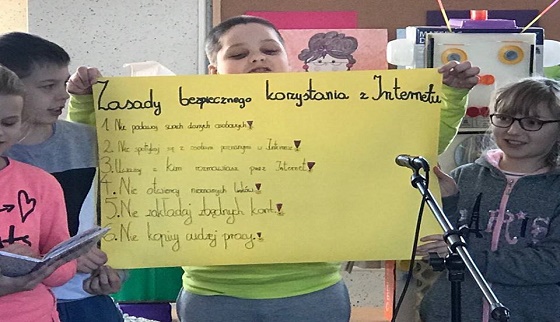 Zasady bezpiecznego korzystania z Internetu
1. Nie podawaj swoich danych osobowych!
2. Nie spotykaj się z osobami poznanymi w Internecie!
3. Uważaj z kim rozmawiasz przez Internet!
4. Nie otwieraj nieznanych linków!
5. Nie zakładaj zbędnych kont!
6. Nie kopiuj cudzej pracy!
PARIS